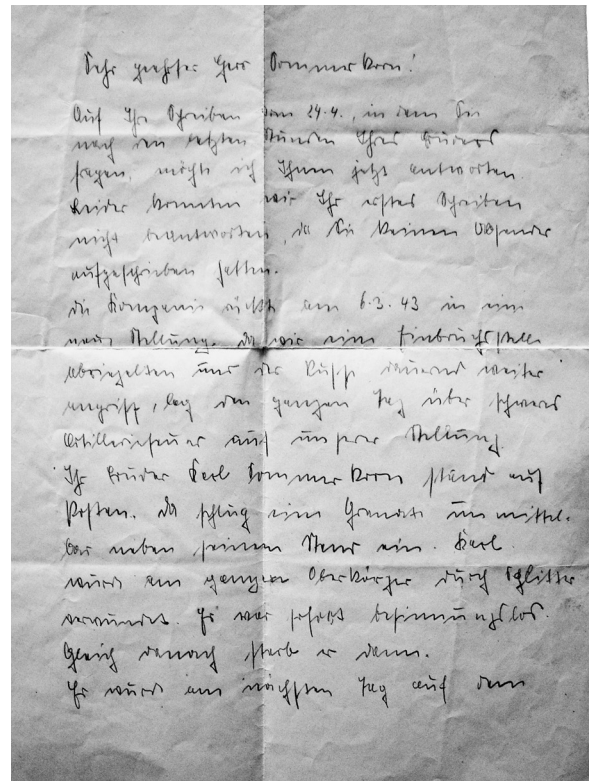 Sehr geehrter Herr Sommerkorn!
Auf Ihr Schreiben vom 24.4., in dem Sie
nach den letzten Stunden Ihres Bruders
fragen, möchte ich Ihnen jetzt antworten.
Leider konnten wir Ihr erstes Schreiben
nicht beantworten, da Sie keinen Absender
aufgeschrieben hatten.
Die Kompanie rückte am 6.3.43 in eine
neue Stellung. Da wir eine Einbruchstelle
abriegelten und der Russe dauernd weiter
angriff, lag den ganzen Tag über schweres
Artilleriefeuer auf unserer Stellung.
Ihr Bruder Karl Sommerkorn stand auf
Posten. Da schlug eine Granate unmittel-
bar neben seinem Stand ein. Karl
wurde am ganzen Oberkörper durch Splitter
verwundet. Er war sofort besinnungslos.
Gleich danach starb er dann.
Er wurde am nächsten Tag auf dem